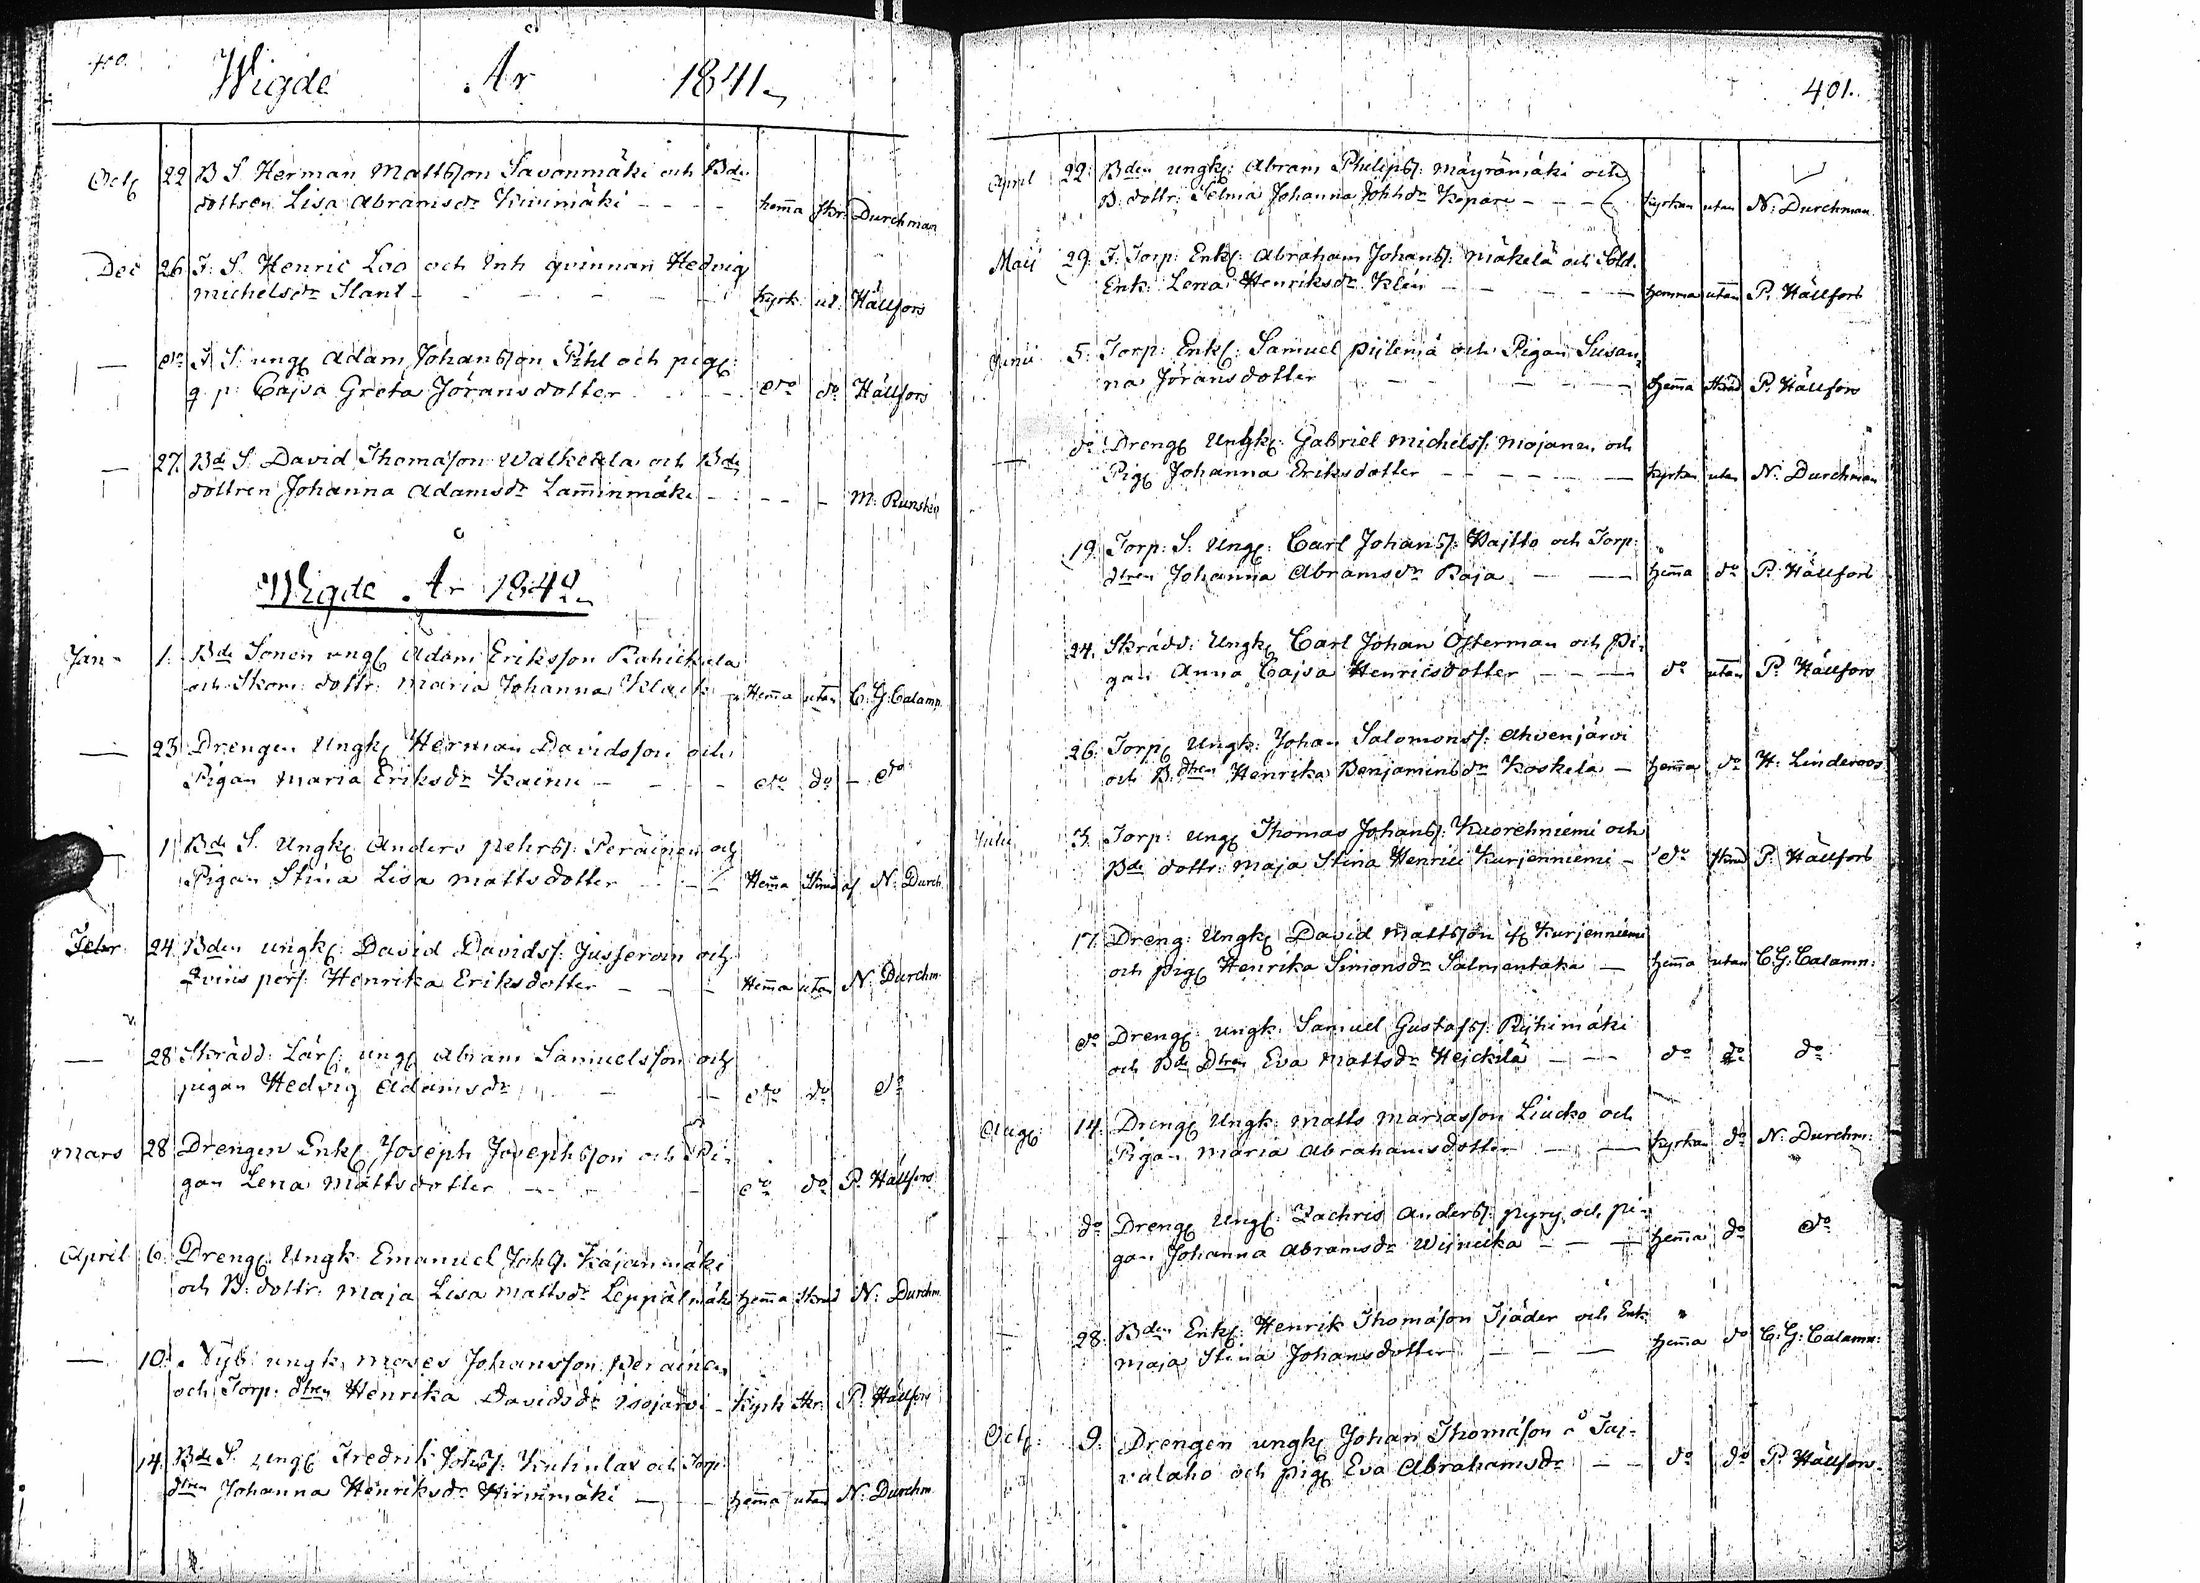 400.
Wigde År 1841.
Octb 22 B S. Herman Mattsson Savonmäki och Bde
dottren Lisa Abramsdr Kivimäki - - - - hema Skr: Durchman
Dec 26 T. S. Henric Loo och Inh qvinnan Hedvig
Michelsdr Slant - - - - - Kyrk. ut. Hällfors
— do I S. ungk Adam Johansson Pihl och pig:
q. p: Cajsa Greta Jöransdotter - do do Hällfors
— 27. Bde S. David Thomasson Walkeala och Bde
dottren Johanna Adamsdr Lamminmäki - - - - M: Runsten
Wigde År 1842.
Jan- 1. Bde Sonen ungk Adam Eriksson Rahickala
och Skom: dottr: Maria Johanna Klack - Hemma utan C. G. Calamn.
— 23 Drengen Ungk Herman Davidsson och
Pigan Maria Eriksdr Kainu - - - - do do - do
— 1 Bde S. Ungk Anders Pehrss: Peräinen och
Pigan Stina Lisa Mattsdotter - - - Hema Skrud af N: Durch.
Febr 24 Bden ungk: David Davids: Jusseroin och
Qvins pers: Henrika Eriksdotter - - - Hema utan N: Durchm.
— 28 Skrädd: Lärl: ungk Abram Samuelsson och
pigan Hedvig Adamsdr - - do do do
Mars 28 Drengen Enkl Joseph Josephsson och Pi-
gan Lena Mattsdotter - - - do do P. Hällfors
April 6. Drengk Ungk Emanuel Johss. Kajanmäki
och B: dottr: Maja Lisa Mattsdr Leppälmäki hema Skrud N: Durchm.
— 10. Nyb: ungk, Moses Johansson Peräinen
och Torp: dtren Henrika Davidsdr Isojärvi - Kyrk Skr: P. Hällfors
14. Bde S. ungk Fredrik Johss: Kuhulax och Torp:
dtren Johanna Henriksdr Hirvimäki - - hema utan N: Durchm.
401.
April 22. Bden ungk: Abram Philipss: Mäyrämäki och
B: dottr: Selma Johanna Johhdr Kopare - - - Kyrkan utan N: Durchman.
Maij 29. T. Torp: Enk: Abraham Johanss: Mäkelä och Sold.
Enk: Lena Henriksdr Klén - - - - hemma utan P. Hällfors
Junii 5. Torp: Enkl: Samuel Piilemä och Pigan Susan-
na Jöransdotter - - - - hema Skrud P. Hällfors
— do Drengk Ungk: Gabriel Michelss: Mojanen och
Pigk Johanna Eriksdotter - - - - - Kyrkan utan N: Durchman
19. Torp: S. Ungk: Carl Johanss: Wajtto och Torp:
dtren Johanna Abramsdr Raja - - - hema do P. Hällfors
24. Skrädd: Ungk Carl Johan Österman och Pi-
gan Anna Cajsa Henricsdotter - - - do utan P. Hällfors
26. Torpk Ungk: Johan Salomonss: Ahvenjärvi
och B. dtren Henrika Benjaminsdr Koskela - hema do H. Linderoos
Julii 3. Torp: ungk Thomas Johanss: Kuorehniemi och
Bde dottr: Maja Stina Henrici Kurjenniemi - do skrud P. Hällfors
17. Dreng: Ungk David Mattsson ifr Kurjenniemi
och pigk Henrika Simonsdr Salmentaka - hema utan C. G. Calamn:
do Drengk: ungk: Samuel Gustafss: Ryhimäki
och Bde Dtren Eva Mattsdr Hejckilä - - - do do do
Augk: 14. Drengk Ungk: Matts Mariasson Liucko och
Pigan Maria Abrahamsdotter - - Kyrkan do N: Durchm:
do Drengk Ungk: Zachris Anderss: Pyry, och pi-
gan Johanna Abramsdr Wijnicka - - - hema do do
— 28. Bden Enkl: Henrik Thomasson Sjäder och Enk:
Maja Stina Johansdotter - - - hema do C. G: Calamn:
Octb: 9. Drengen ungk Johan Thomasson å Tai-
valaho och pigk Eva Abrahamsdr - - do do P. Hällfors